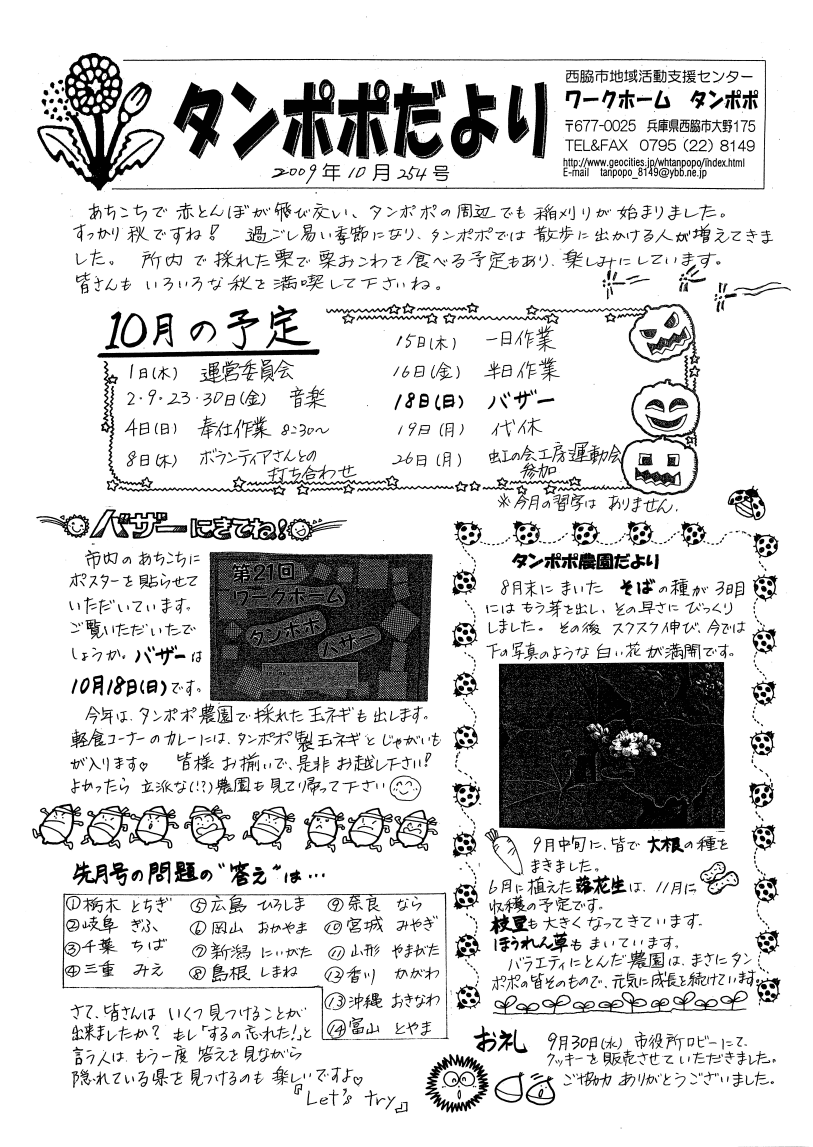 タンポポだより
西脇市地域活動支援センター
ワークホーム　タンポポ
〒677-0025　兵庫県西脇市大野175
TEL&FAX　0795（22）8149
http://www.geocities.jp/whtanpopo/index.html
E-mail　tanpopo_8149@ybb.ne.jp
2009年10月254号
あちこちで赤とんぼが飛び交い、タンポポの周辺でも稲刈りが始まりました。
すっかり秋ですね！　過ごし易い季節になり、タンポポでは散歩に出かける人が増えてきま
した。所内で採れた栗で栗おこわを食べる予定もあり、楽しみにしています。
皆さんもいろいろな秋を満喫して下さいね。
10月の予定
1日(木)　運営委員会
2・9・23・30日(金)　音楽
4日(日)　奉仕作業 8:30～
8日(木)　ボランティアさんとの
打ち合わせ
15日(木)　一日作業
16日(金)　半日作業
18日(日)　バザー
19日(月)　代休
26日(月)　虹の会工房運動会
参加
※今月の習字はありません。
バザーにきてね！
市内のあちこちに
ポスターを貼らせて
いただいています。
ご覧いただいたで
しょうか。バザーは
10月18日(日)です。
第21回
ワークホーム
タンポポ
バザー
今年は、タンポポ農園で採れた玉ネギも出します。
軽食コーナーのカレーには、タンポポ製玉ネギとじゃがいも
が入ります♡　皆様お揃いで、是非お越し下さい！
よかったら立派な(!?)農園も見て帰って下さい
タンポポ農園だより
8月末にまいたそばの種が3日目
にはもう芽を出し、その早さにびっくり
しました。その後スクスク伸び、今では
下の写真のような白い花が満開です。
9月中旬に、皆で大根の種を
まきました。
6月に植えた落花生は、11月に
収穫の予定です。
枝豆も大きくなってきています。
ほうれん草もまいています。
バラエティにとんだ農園は、まさにタン
ポポの皆そのもので、元気に成長を続けています。
先月号の問題の“答え”は…
①栃木　とちぎ
②岐阜　ぎふ
③千葉　ちば
④三重　みえ
⑤広島　ひろしま
⑥岡山　おかやま
⑦新潟　にいがた
⑧島根　しまね
⑨奈良　なら
⑩宮城　みやぎ
⑪山形　やまがた
⑫香川　かがわ
⑬沖縄　おきなわ
⑭富山　とやま
さて、皆さんはいくつ見つけることが
出来ましたか？もし「するの忘れた！」と
言う人は、もう一度答えを見ながら
隠れている県を見つけるのも楽しいですよ♡
『Let's try』
お礼
9月30日(水)市役所ロビーにて、
クッキーを販売させていただきました。
ご協力ありがとうございました。